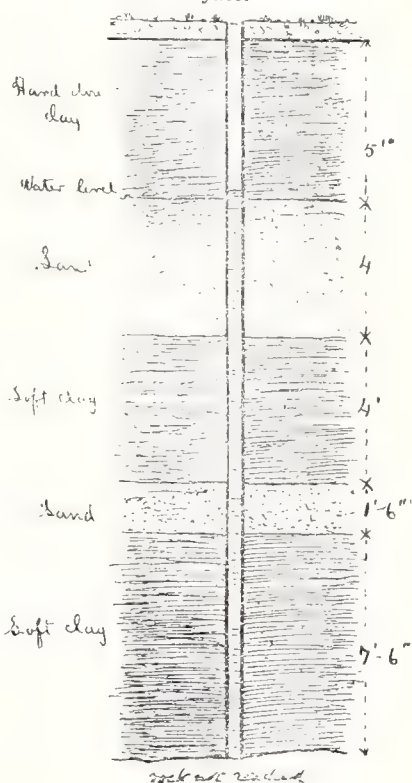 Hard
clay
5'
Water level
4
Soft clay
4'
Sand
1'-6"
Soft clay
7'-6"
rock not reached